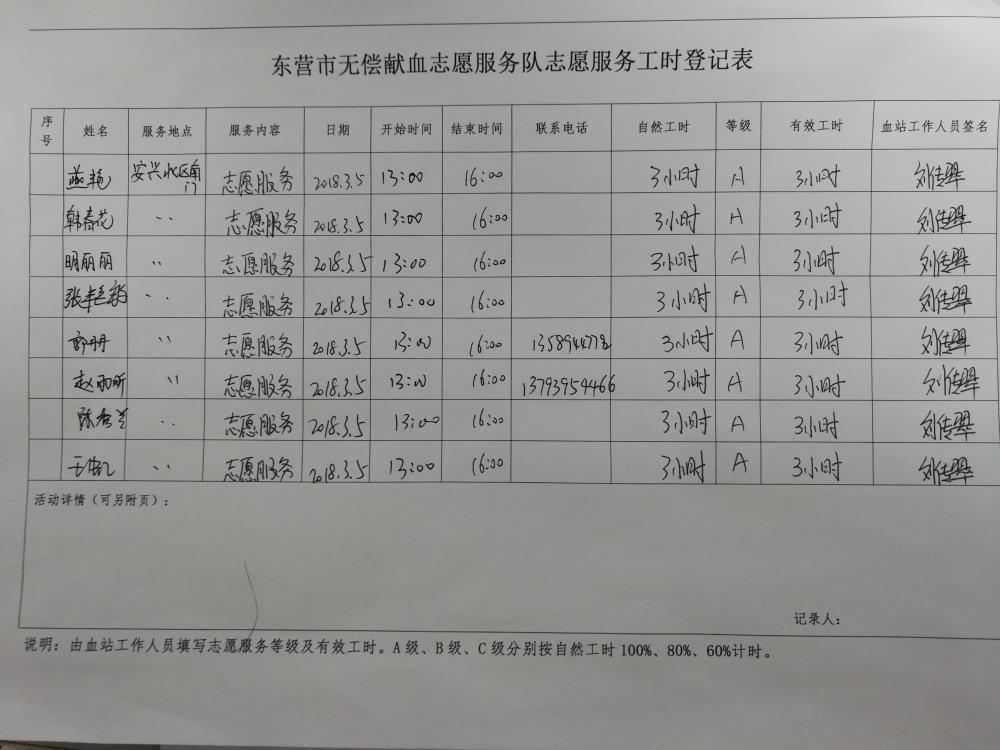 东营市无偿献血志愿服务队志愿服务工时登记表
序号 姓名 服务地点 服务内容 日期 开始时间 结束时间 联系电话 自然工时 等级 有效工时 血站工作人员签名
燕艳 安兴小区南门 志愿服务 2018.3.5 13:00 16:00 3小时 A 3小时 刘传翠
韩春花 〃 志愿服务 2018.3.5 13:00 16:00 3小时 A 3小时 刘传翠
明丽丽 〃 志愿服务 2018.3.5 13:00 16:00 3小时 A 3小时 刘传翠
〃 志愿服务 2018.3.5 13:00 16:00 3小时 A 3小时 刘传翠
〃 志愿服务 2018.3.5 13:00 16:00 3小时 A 3小时 刘传翠
赵丽昕 〃 志愿服务 2018.3.5 13:00 16:00 13793954466 3小时 A 3小时 刘传翠
〃 志愿服务 2018.3.5 13:00 16:00 3小时 A 3小时 刘传翠
〃 志愿服务 2018.3.5 13:00 16:00 3小时 A 3小时 刘传翠
活动详情（可另附页）：
记录人：
说明：由血站工作人员填写志愿服务等级及有效工时。A级、B级、C级分别按自然工时100%、80%、60%计时。